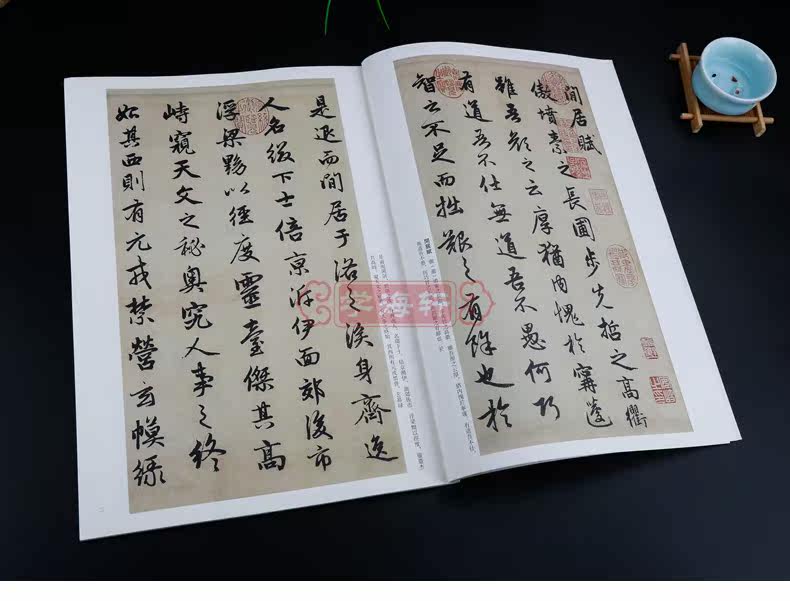 閒居賦
傲墳素之長圃步先哲之高衢
雖吾顏之云厚猶內愧於甯蘧
有道吾不仕無道吾不愚何巧
智之不足而拙艱之有餘也於
是退而閒居于洛之涘身齊逸
人名綴下士倍京泝伊面郊後市
浮梁黝以徑度靈臺傑其高
峙窺天文之祕奧究人事之終
始其西則有元戎禁營玄幙綠
学海轩